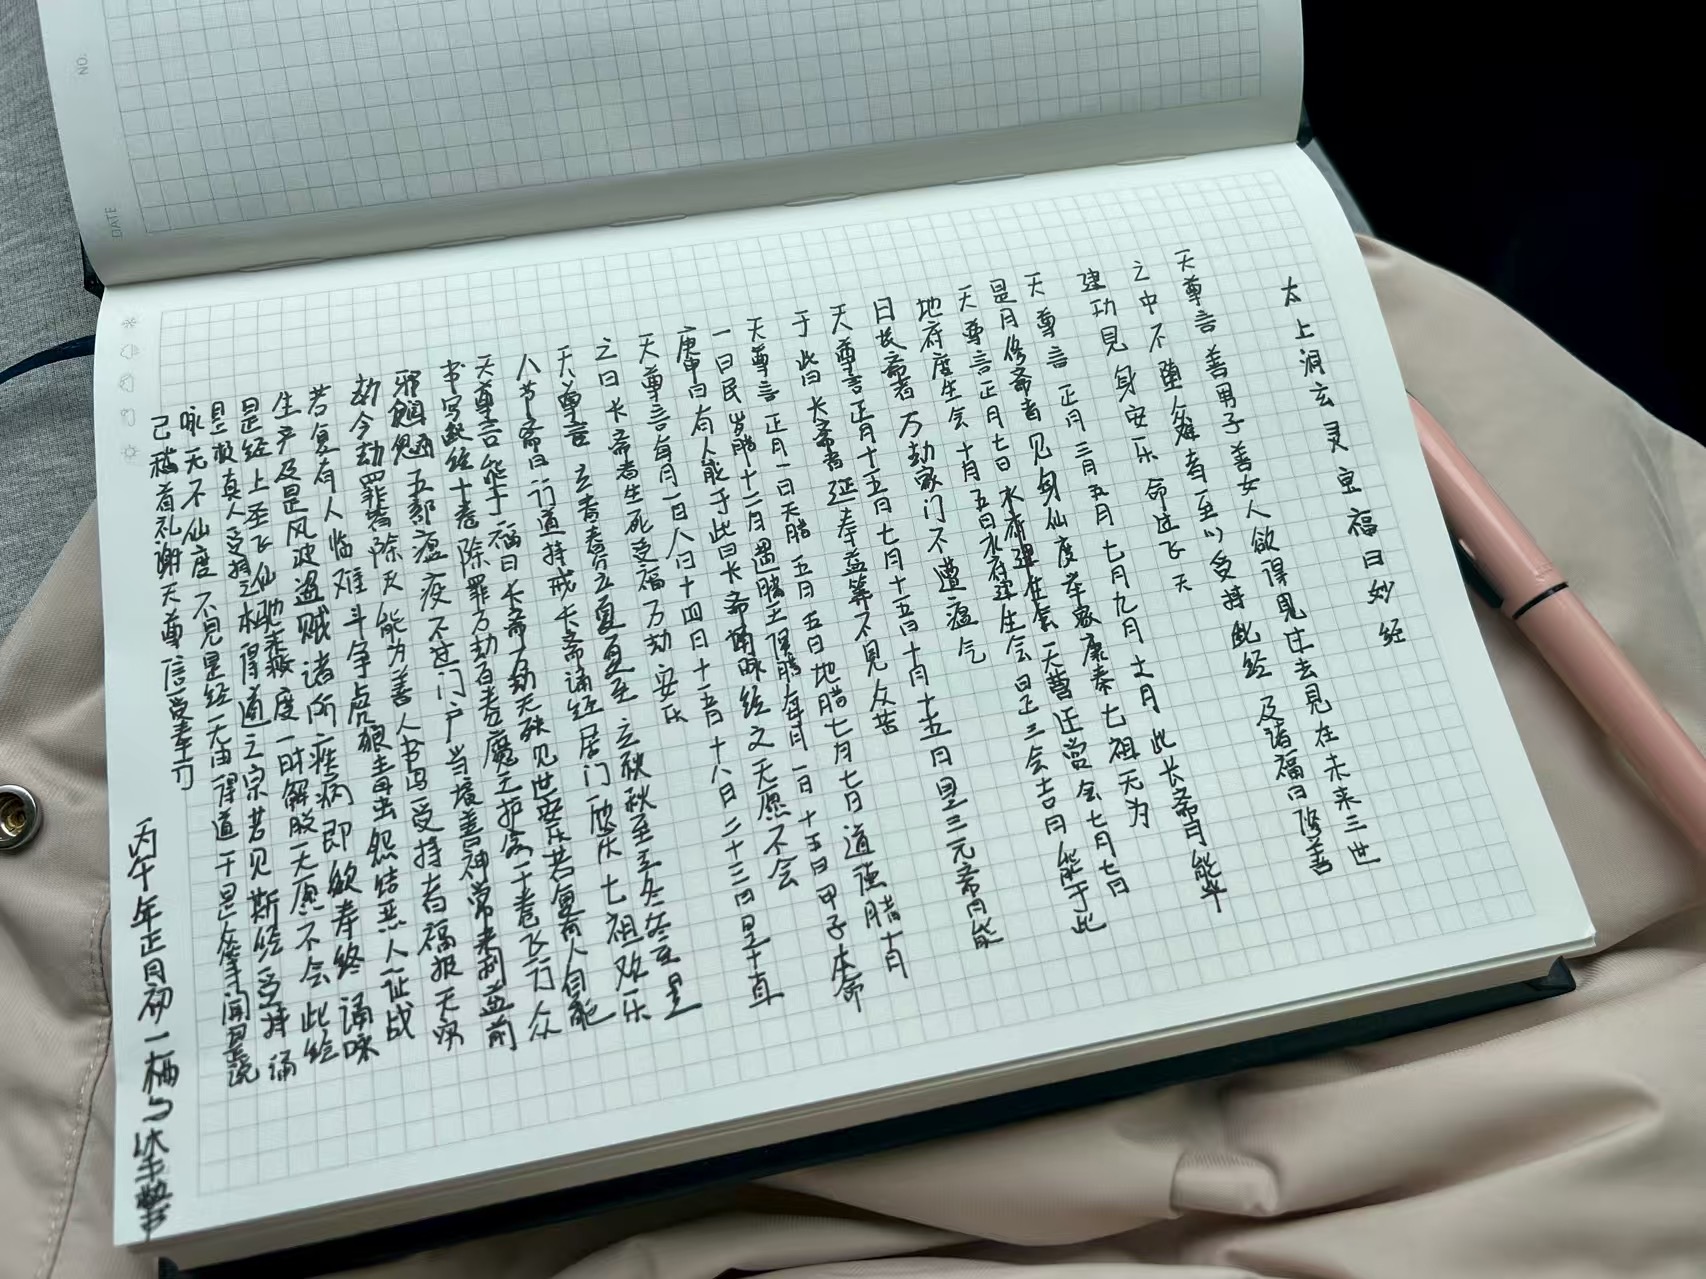 太上洞玄灵宝福日妙经
天尊言善男子善女人欲得见过去见在未来三世
之中不堕众难者至心受持此经及诸福日修善
建功见身安乐命过飞天
天尊言正月三月五月七月九月十一月此长斋月能毕
是月修斋者见身仙度举家康泰七祖无为
天尊言正月七日天曹迁赏会七月七日
地府度生会十月五日水府建生会是三会吉日能于此
日长斋者万劫家门不遭瘟气
天尊言正月十五日七月十五日十月十五日是三元斋日能
于此日长斋者延年益算不见众苦
天尊言正月一日天腊五月五日地腊七月七日道德腊十月
一日民岁腊十二月遇腊王侯腊每月一日十五日甲子本命
庚申日有人能于此日长斋诵咏经文无愿不会
天尊言每月一日八日十四日十五日十八日二十三日是十直
之日长斋者生死受福万劫安乐
天尊言立春春分立夏夏至立秋秋至立冬冬至是
八节斋日行道持戒长斋诵经居门欣庆七祖欢乐
天尊言能于福日长斋万劫无殃见世安乐若复有人自能
书写此经十卷除罪万劫百卷魔王护命千卷飞行众
邪魍魉五部瘟疫不过门户当境善神常来利益前
劫今劫罪皆除灭能为善人书写受持者福报天
若复有人临难斗争虎狼毒虫怨结恶人征战
生产及是风波盗贼诸所疾病即欲寿终诵咏
是经上圣飞仙驰乘救度一时解脱无愿不会此经
是故真人受持之得道之宗若见斯经受持诵
咏无不仙度不见是经无由得道于是众等闻是说
已稽首礼谢天尊信受奉行
丙午年正月初一栖
NO.
DATE